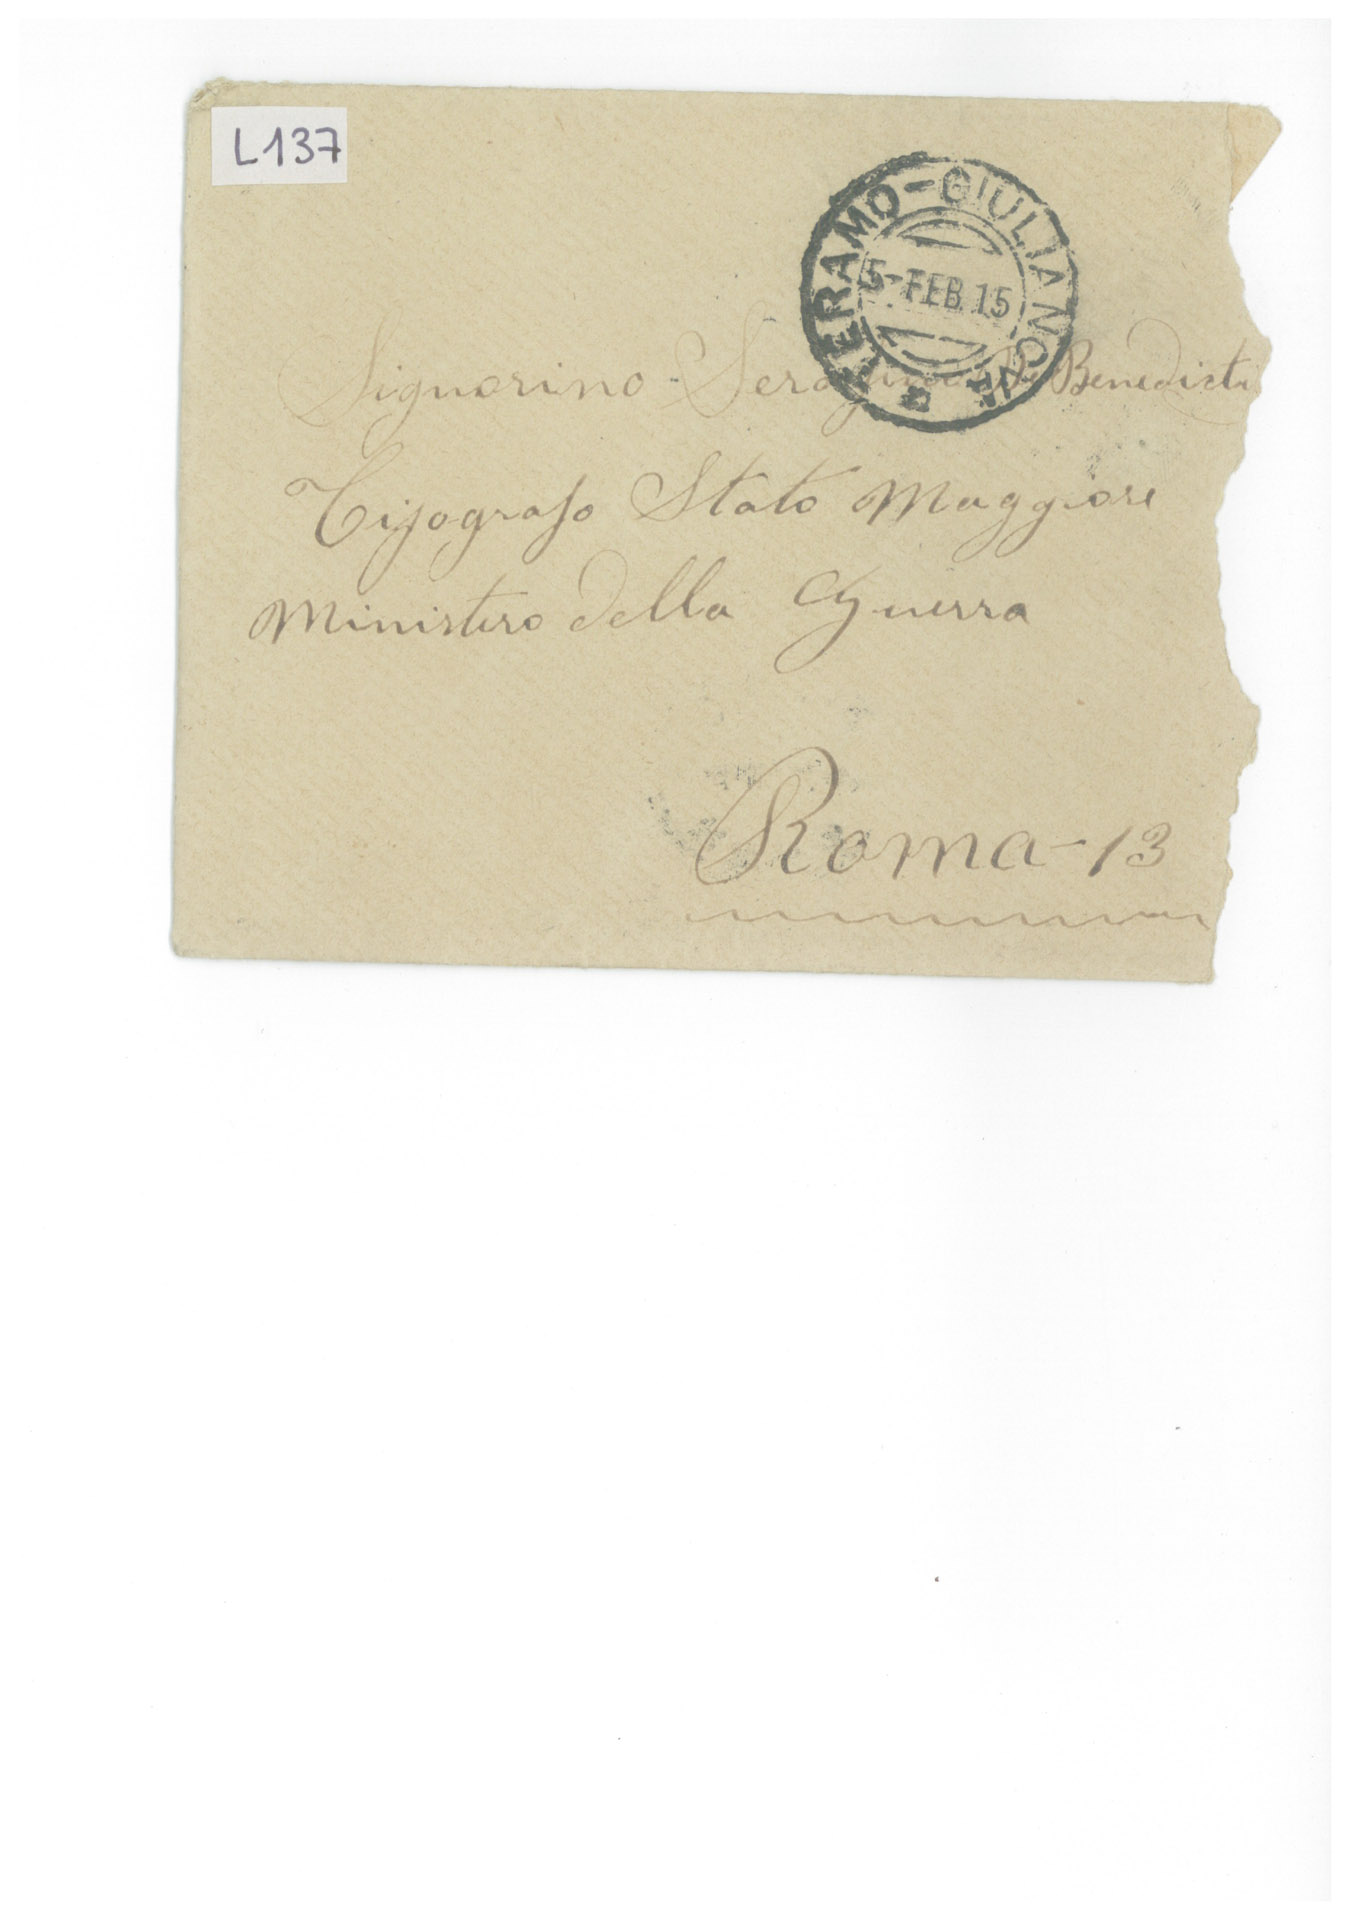 L137
TERAMO-GIULIANOVA
5-FEB.15
Signorino Serafino Di Benedicti
Tipografo Stato Maggiore
Ministero della Guerra
Roma-13